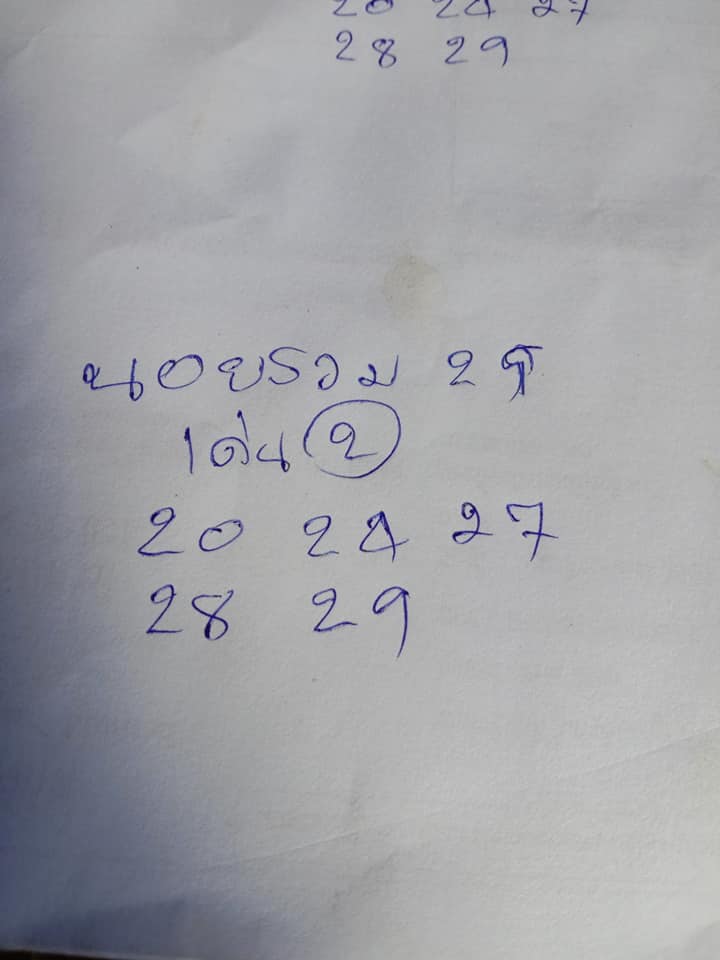 20 24 27
28 29
นอยรวม 2ตั
เด่น 2
20 24 27
28 29